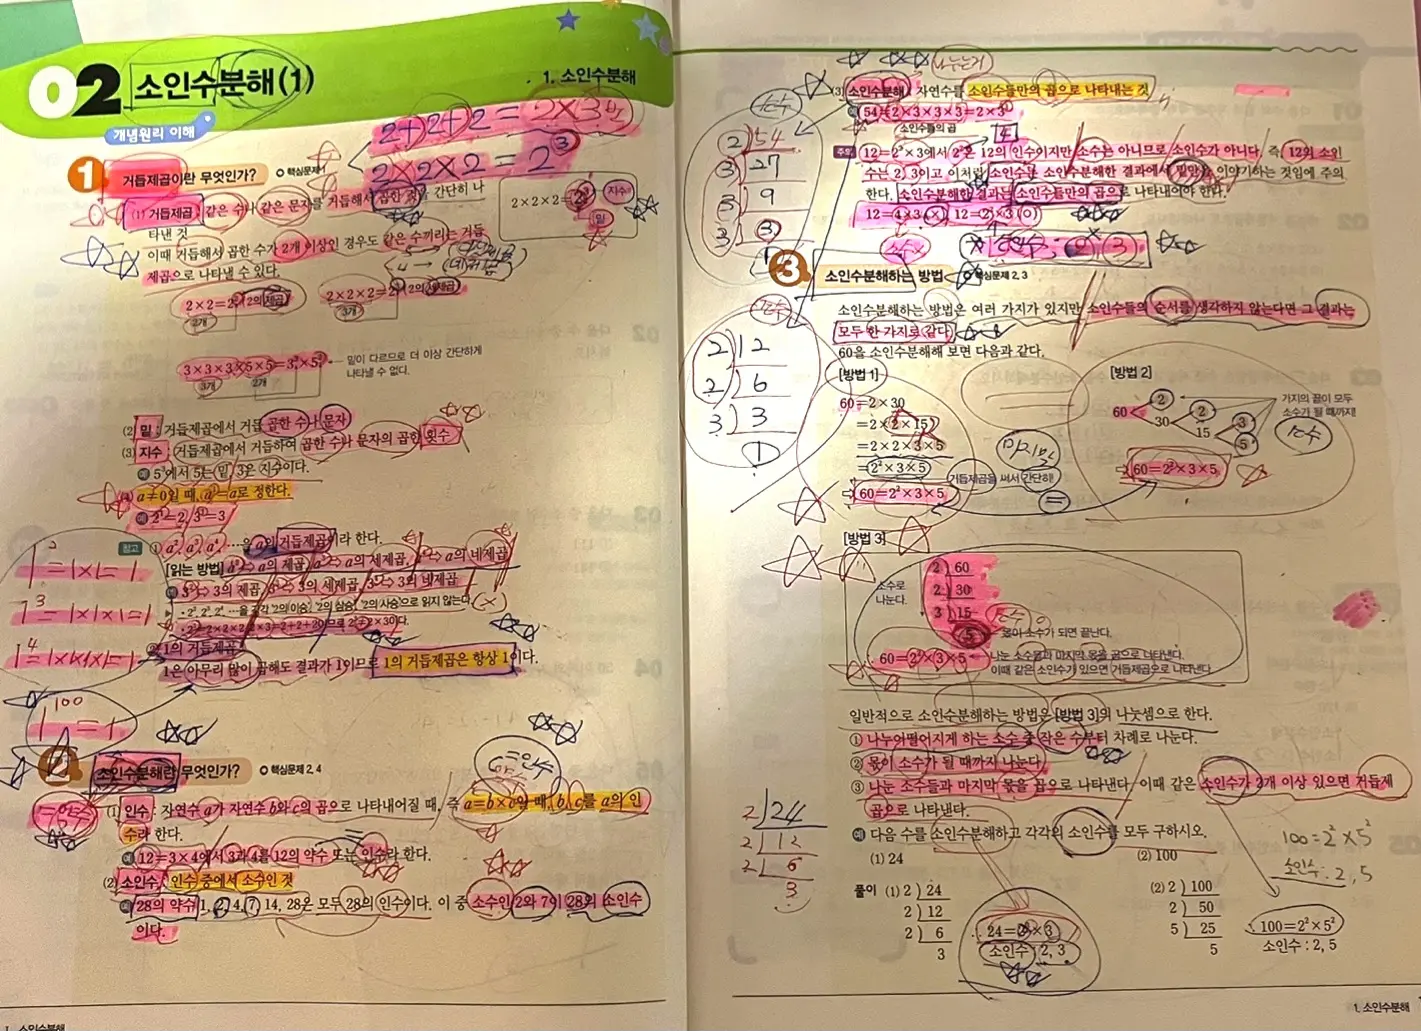 02 소인수분해(1)
1. 소인수분해
개념원리 이해
2+2+2 = 2×3
2×2×2 = 2³
1 거듭제곱이란 무엇인가? 핵심문제 1
(1) 거듭제곱: 같은 수나 같은 문자를 거듭해서 곱한 것을 간단히 나
타낸 것
이때 거듭해서 곱한 수가 2개 이상인 경우도 같은 수끼리는 거듭
제곱으로 나타낼 수 있다.
2×2×2=2³ 지수
밑
2×2=2² (2의 제곱) 2×2×2=2³ (2의 세제곱)
2개 3개
3×3×3×5×5=3³×5² 밑이 다르므로 더 이상 간단하게
나타낼 수 없다.
3개 2개
(2) 밑: 거듭제곱에서 거듭 곱한 수나 문자
(3) 지수: 거듭제곱에서 거듭하여 곱한 수나 문자의 곱한 횟수
예 5³에서 5는 밑, 3은 지수이다.
(4) a≠0일 때, a¹=a로 정한다.
예 2¹=2, 3¹=3
참고 ① a², a³, a⁴, …을 a의 거듭제곱이라 한다.
[읽는 방법] a² ⇔ a의 제곱, a³ ⇔ a의 세제곱, a⁴ ⇔ a의 네제곱
예 3² ⇔ 3의 제곱, 3³ ⇔ 3의 세제곱, 3⁴ ⇔ 3의 네제곱
▶ • 2², 2³, 2⁴, …을 각각 '2의 이승', '2의 삼승', '2의 사승'으로 읽지 않는다. (×)
② 1의 거듭제곱
1은 아무리 많이 곱해도 결과가 1이므로 1의 거듭제곱은 항상 1이다.
1² = 1×1 = 1
1³ = 1×1×1 = 1
1⁴ = 1×1×1×1 = 1
1¹⁰⁰ = 1
2 소인수분해란 무엇인가? 핵심문제 2, 4
약수=인수
(1) 인수: 자연수 a가 자연수 b와 c의 곱으로 나타내어질 때, 즉 a=b×c일 때, b, c를 a의 인
수라 한다.
예 12=3×4에서 3과 4를 12의 약수 또는 인수라 한다.
(2) 소인수: 인수 중에서 소수인 것
예 28의 약수 1, 2, 4, 7, 14, 28은 모두 28의 인수이다. 이 중 소수인 2와 7이 28의 소인수
이다.
1. 소인수분해
나누는거
(3) 소인수분해: 자연수를 소인수들만의 곱으로 나타내는 것
예 54=2×3×3×3=2×3³
소인수들의 곱
4
주의 12=2²×3에서 2²은 12의 인수이지만 소수는 아니므로 소인수가 아니다. 즉, 12의 소인
수는 2, 3이고 이처럼 소인수는 소인수분해한 결과에서 밑만을 이야기하는 것임에 주의
한다. 소인수분해한 결과는 소인수들만의 곱으로 나타내어야 한다.
12=4×3 (×) 12=2²×3 (○)
소수×
소인수: 2, 3
소수
2 ) 54
3 ) 27
3 ) 9
3 ) 3
1
3 소인수분해하는 방법 핵심문제 2, 3
소인수분해하는 방법은 여러 가지가 있지만 소인수들의 순서를 생각하지 않는다면 그 결과는
모두 한 가지로 같다.
60을 소인수분해해 보면 다음과 같다.
소수
2 ) 12
2 ) 6
3 ) 3
1
[방법 1]
60=2×30
=2×(2×15)
=2×2×3×5
=2²×3×5 거듭제곱을 써서 간단히!
⇨ 60=2²×3×5
[방법 2]
60 2
30 2
15 3
5
가지의 끝이 모두
소수가 될 때까지!
소수
⇨ 60=2²×3×5
[방법 3]
소수로
나눈다.
2 ) 60
2 ) 30
3 ) 15
5 몫이 소수가 되면 끝난다.
소수
60=2²×3×5 나눈 소수들과 마지막 몫을 곱으로 나타낸다.
이때 같은 소인수가 있으면 거듭제곱으로 나타낸다.
일반적으로 소인수분해하는 방법은 [방법 3]의 나눗셈으로 한다.
① 나누어떨어지게 하는 소수 중 작은 수부터 차례로 나눈다.
② 몫이 소수가 될 때까지 나눈다.
③ 나눈 소수들과 마지막 몫을 곱으로 나타낸다. 이때 같은 소인수가 2개 이상 있으면 거듭제
곱으로 나타낸다.
예 다음 수를 소인수분해하고 각각의 소인수를 모두 구하시오.
(1) 24 (2) 100
2 ) 24
2 ) 12
2 ) 6
3
100=2²×5²
소인수: 2, 5
풀이 (1) 2 ) 24
2 ) 12
2 ) 6
3
24=2³×3
소인수: 2, 3
(2) 2 ) 100
2 ) 50
5 ) 25
5
100=2²×5²
소인수: 2, 5
1. 소인수분해